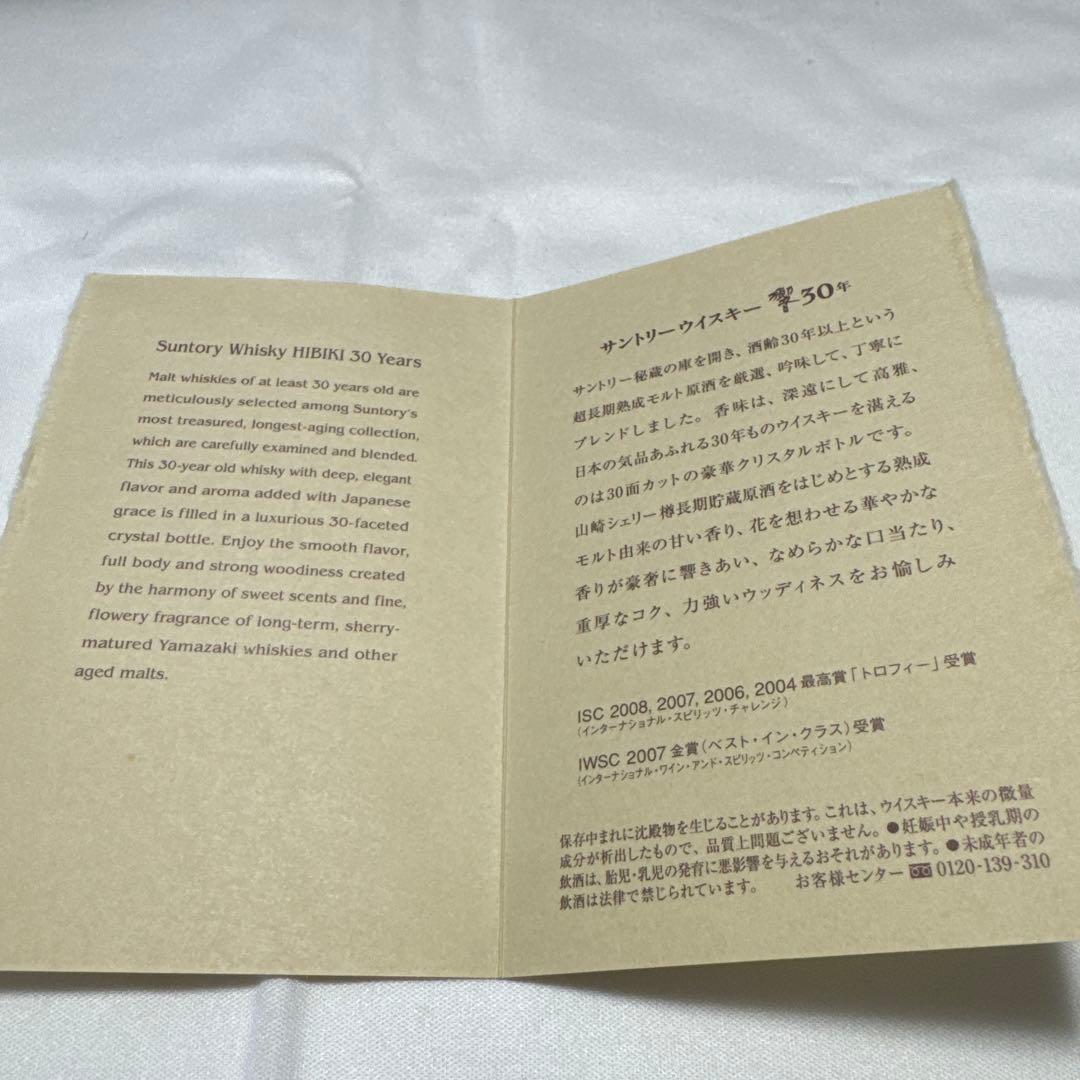 Suntory Whisky HIBIKI 30 Years
Malt whiskies of at least 30 years old are
meticulously selected among Suntory's
most treasured, longest-aging collection,
which are carefully examined and blended.
This 30-year old whisky with deep, elegant
flavor and aroma added with Japanese
grace is filled in a luxurious 30-faceted
crystal bottle. Enjoy the smooth flavor,
full body and strong woodiness created
by the harmony of sweet scents and fine,
flowery fragrance of long-term, sherry-
matured Yamazaki whiskies and other
aged malts.
サントリーウイスキー 響30年
サントリー秘蔵の庫を開き、酒齢30年以上という
超長期熟成モルト原酒を厳選、吟味して、丁寧に
ブレンドしました。香味は、深遠にして高雅、
日本の気品あふれる30年ものウイスキーを湛える
のは30面カットの豪華クリスタルボトルです。
山崎シェリー樽長期貯蔵原酒をはじめとする熟成
モルト由来の甘い香り、花を想わせる華やかな
香りが豪奢に響きあい、なめらかな口当たり、
重厚なコク、力強いウッディネスをお愉しみ
いただけます。
ISC 2008, 2007, 2006, 2004 最高賞「トロフィー」受賞
(インターナショナル・スピリッツ・チャレンジ)
IWSC 2007 金賞(ベスト・イン・クラス)受賞
(インターナショナル・ワイン・アンド・スピリッツ・コンペティション)
保存中まれに沈殿物を生じることがあります。これは、ウイスキー本来の微量
成分が析出したもので、品質上問題ございません。●妊娠中や授乳期の
飲酒は、胎児・乳児の発育に悪影響を与えるおそれがあります。●未成年者の
飲酒は法律で禁じられています。 お客様センター 0120-139-310